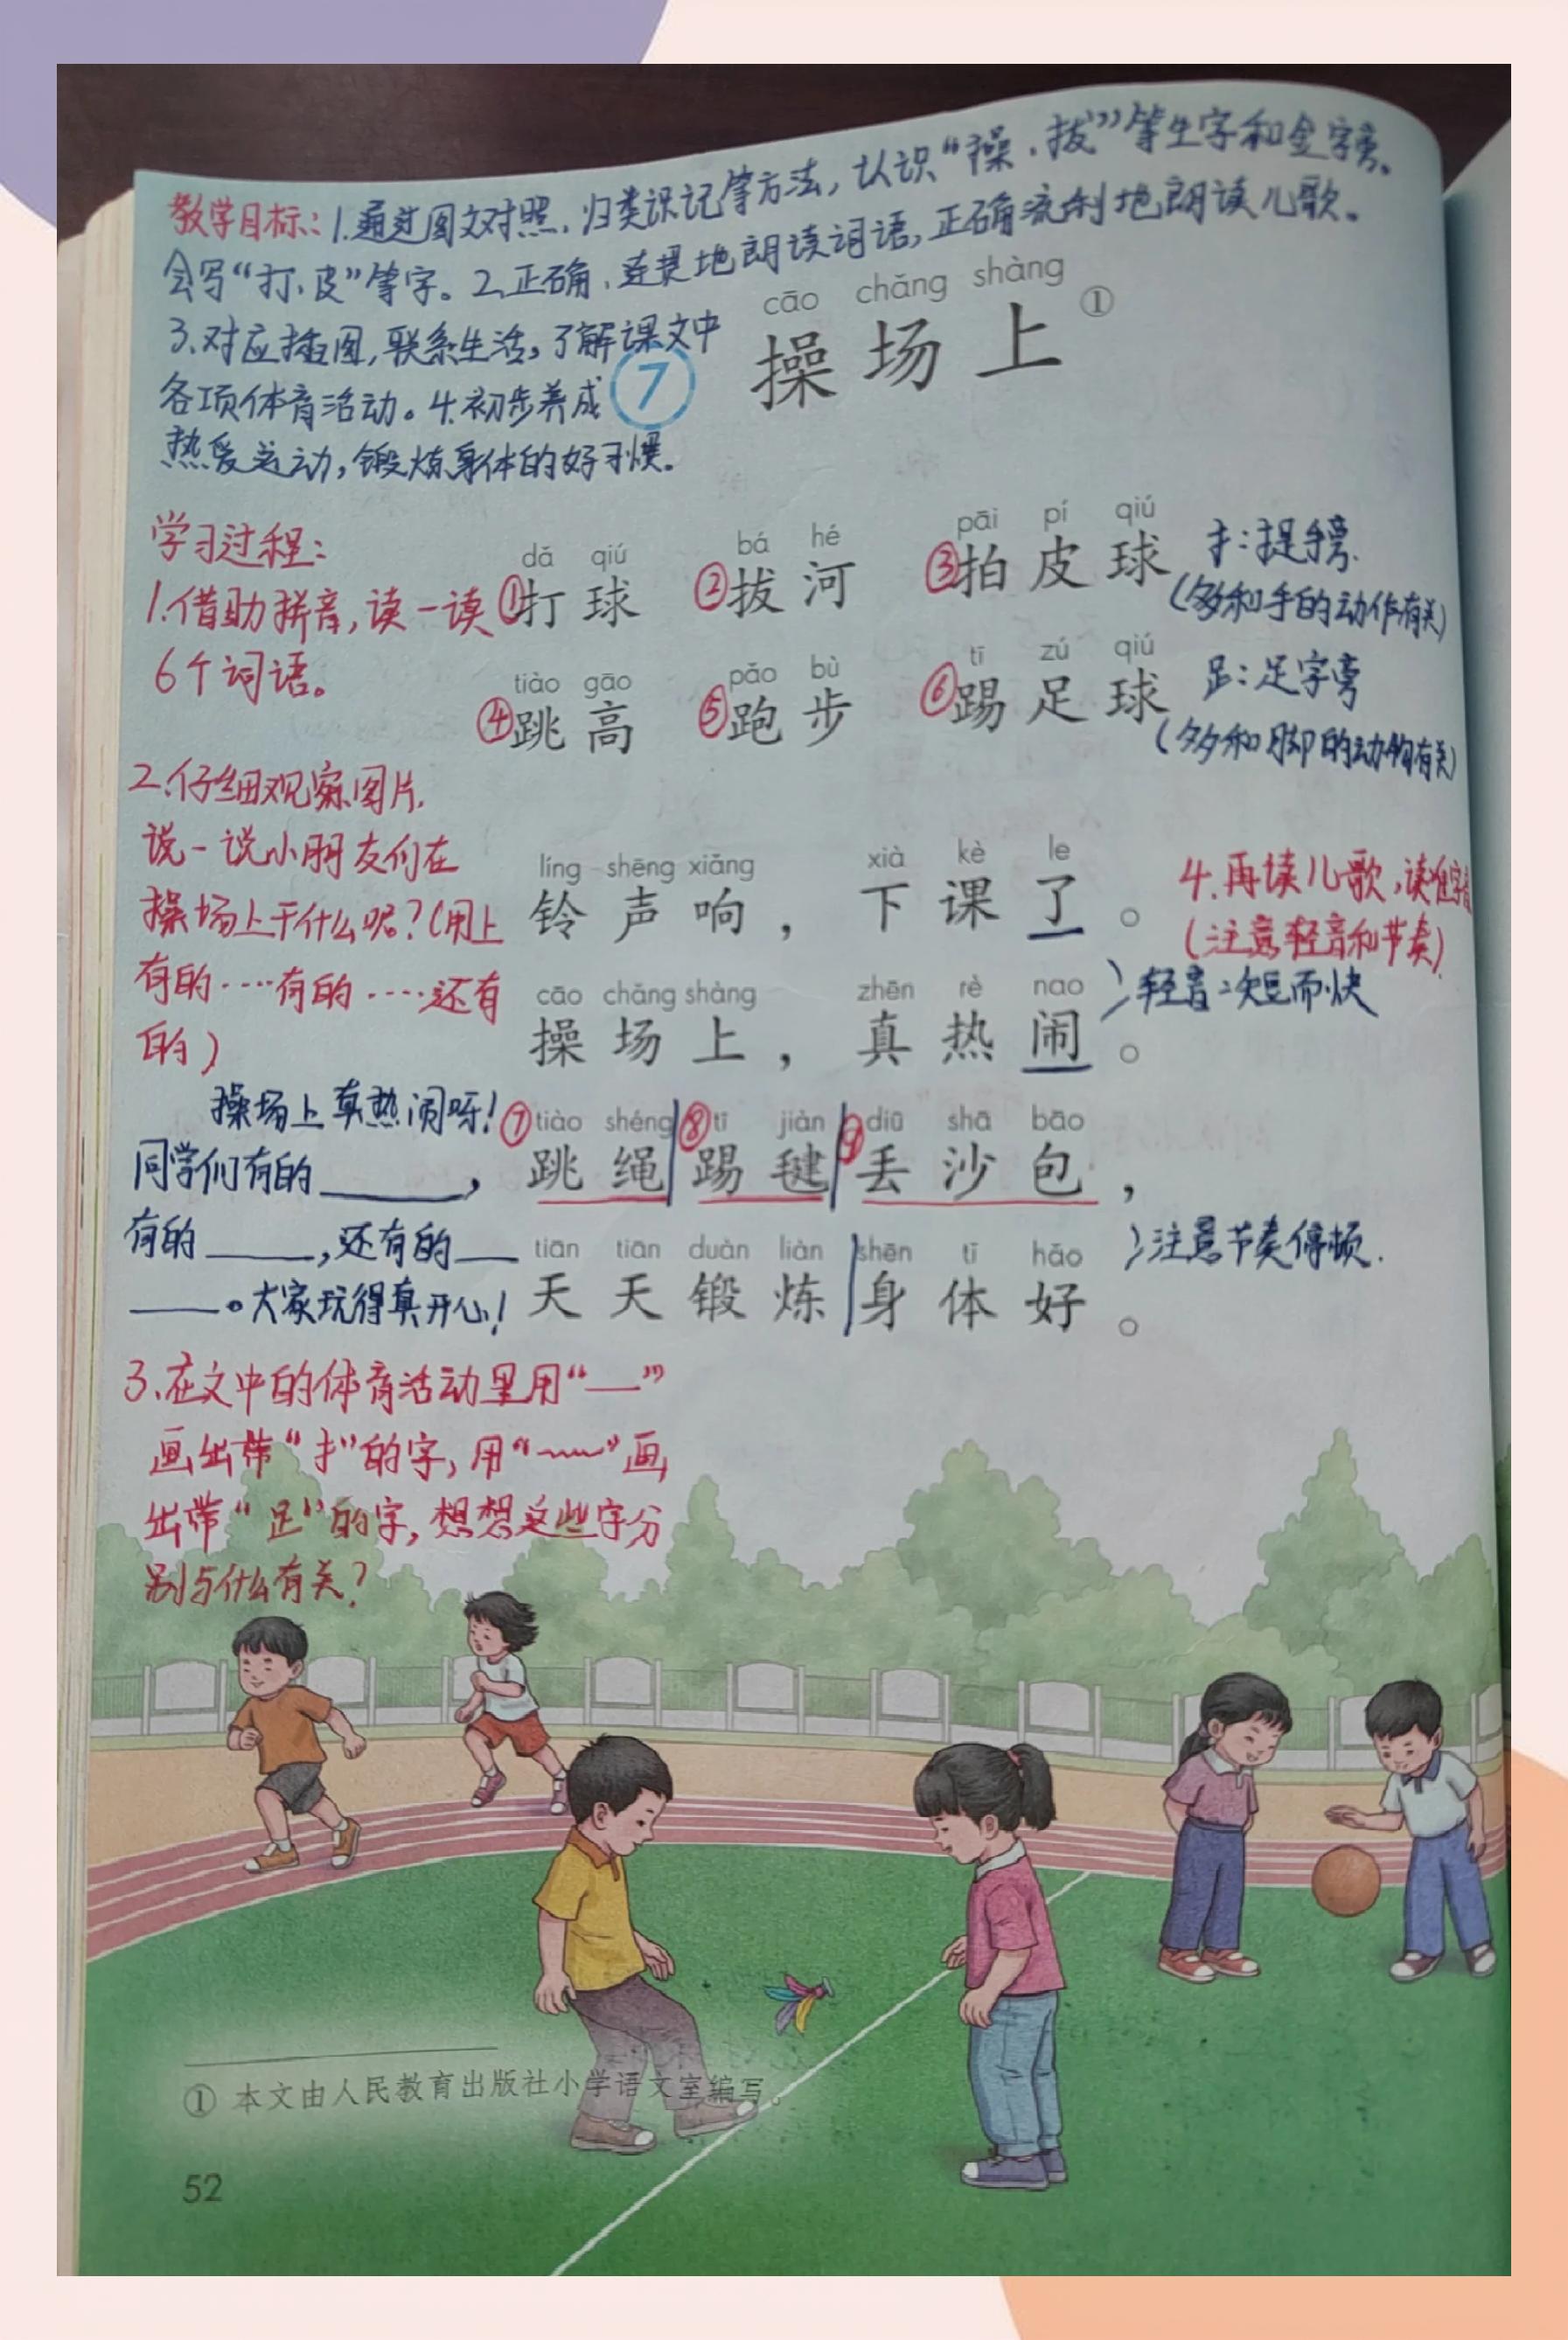 教学目标：1.通过图文对照、归类识记等方法，认识“操、拔”等生字和金字旁。
会写“打、皮”等字。2.正确、连贯地朗读词语，正确流利地朗读儿歌。
3.对应插图，联系生活，了解课文中
各项体育活动。4.初步养成
热爱运动，锻炼身体的好习惯。
cāo chǎng shàng
7 操场上 ①
学习过程：
1.借助拼音，读一读
6个词语。
dǎ qiú bá hé pāi pí qiú
①打球 ②拔河 ③拍皮球
扌：提手旁.
（多和手的动作有关）
tiào gāo pǎo bù tī zú qiú
④跳高 ⑤跑步 ⑥踢足球
𧾷：足字旁
（多和脚的动作有关）
2.仔细观察图片，
说一说小朋友们在
操场上干什么呢？（用上
有的……有的……还有
的）
líng shēng xiǎng xià kè le
铃声响，下课了。
4.再读儿歌，读准字音
（注意轻音和节奏）
cāo chǎng shàng zhēn rè nao
操场上，真热闹。
轻音：短而快
操场上真热闹呀！
同学们有的______，
有的_____，还有的__
____。大家玩得真开心！
⑦tiào shéng ⑧tī jiàn ⑨diū shā bāo
跳绳踢毽丢沙包，
tiān tiān duàn liàn shēn tǐ hǎo
天天锻炼身体好。
注意节奏停顿.
3.在文中的体育活动里用“—”
画出带“扌”的字，用“﹏”画
出带“𧾷”的字，想想这些字分
别与什么有关？
① 本文由人民教育出版社小学语文室编写。
52